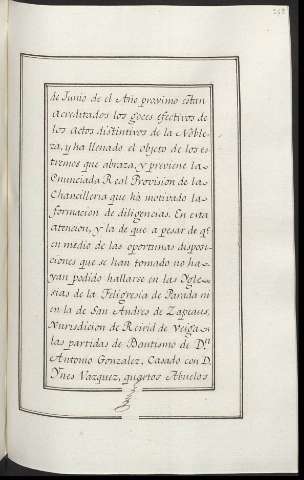 de Junio de el Año proximo estan
acreditados los goces efectivos de
los actos distintivos de la Noble-
za, y ha llenado el objeto de los es-
tremos que abraza, y previene la
Enunciada Real Provision de la
Chancilleria que há motivado la
formacion de diligencias. En esta
atencion, y la de que a pesar de qe.
en medio de las oportunas disposi-
ciones que se han tomado no ha-
yan podido hallarse en las Ygle-
sias de la Feligresia de Parada ni
en la de San Andres de Zapeaus,
Jurisdicion de Reirid de Veiga
las partidas de Bautismo de Dn.
Antonio Gonzalez, Casado con D.
Ynes Vazquez, quartos Abuelos